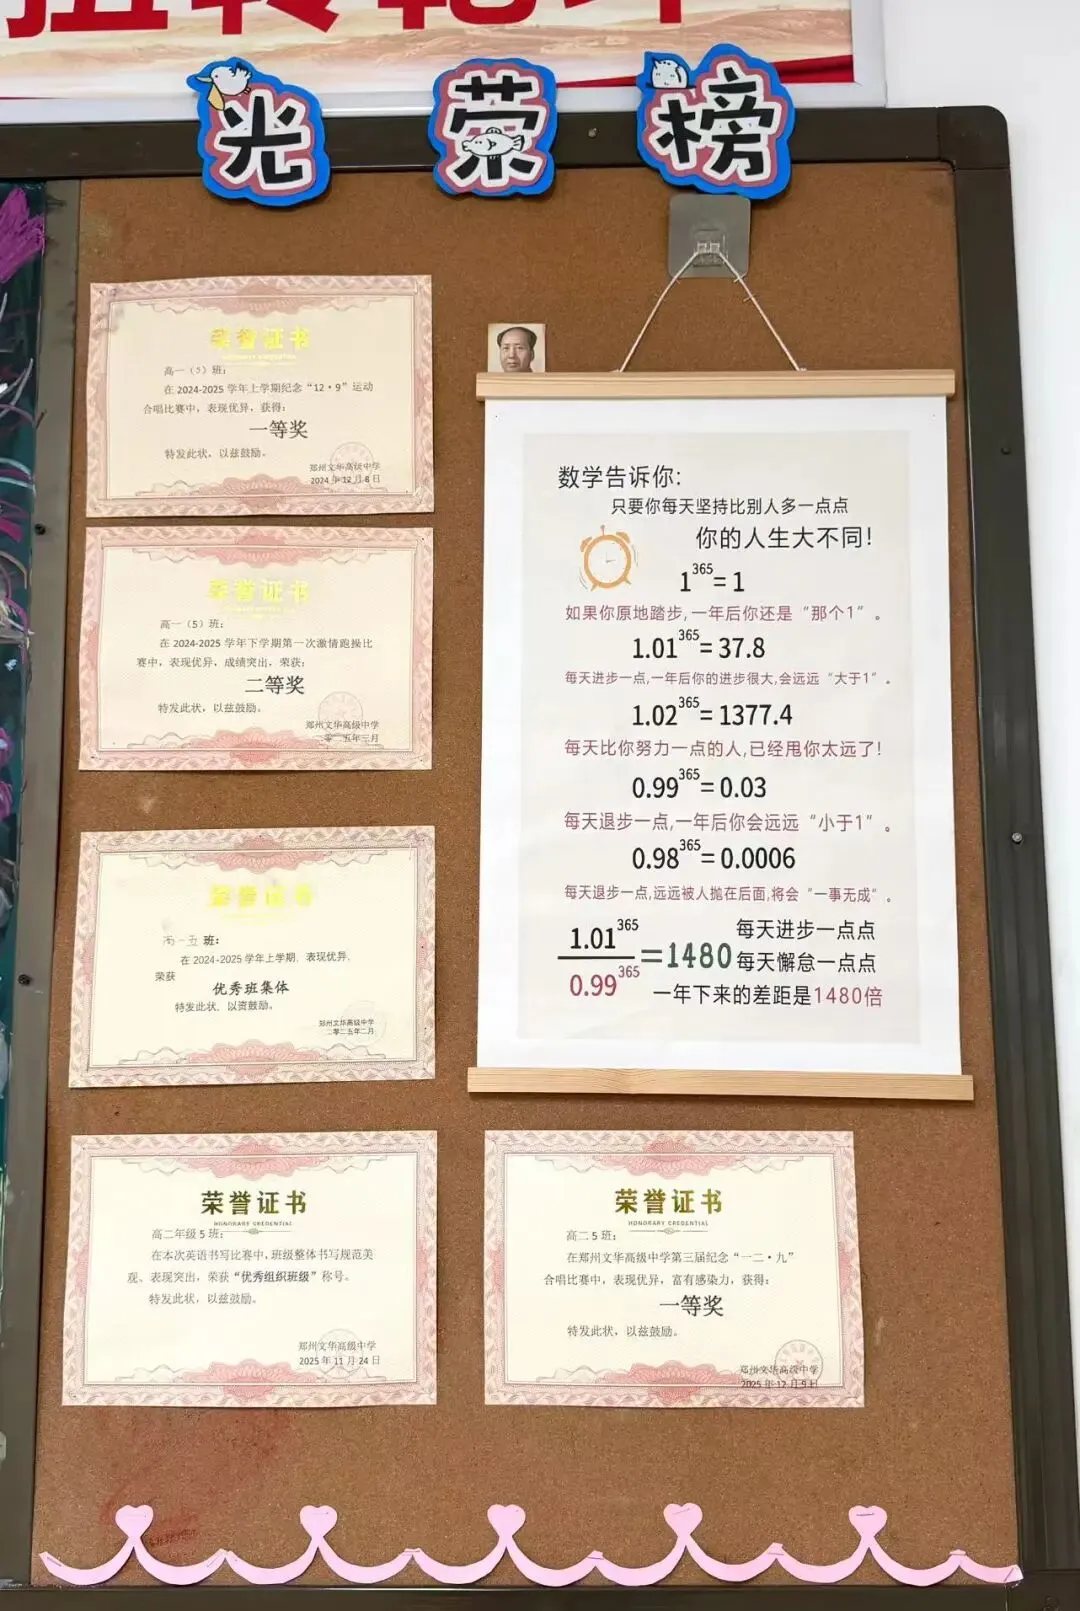 光荣榜
荣誉证书
高一（5）班：
在 2024-2025 学年上学期纪念“12·9”运动
合唱比赛中，表现优异，获得：
一等奖
特发此状，以兹鼓励。
郑州文华高级中学
2024 年 12 月 8 日
荣誉证书
高一（5）班：
在 2024-2025 学年下学期第一次激情跑操比
赛中，表现优异，成绩突出，荣获：
二等奖
特发此状，以兹鼓励。
郑州文华高级中学
二零二五年三月
荣誉证书
高一五 班：
在 2024-2025 学年上学期，表现优异，
荣获
优秀班集体
特发此状，以资鼓励。
郑州文华高级中学
二零二五年二月
荣誉证书
HONORARY CREDENTIAL
高二年级 5 班：
在本次英语书写比赛中，班级整体书写规范美
观、表现突出，荣获“优秀组织班级”称号。
特发此状，以兹鼓励。
郑州文华高级中学
2025 年 11 月 24 日
数学告诉你:
只要你每天坚持比别人多一点点
你的人生大不同!
1^365 = 1
如果你原地踏步,一年后你还是“那个1”。
1.01^365 = 37.8
每天进步一点,一年后你的进步很大,会远远“大于1”。
1.02^365 = 1377.4
每天比你努力一点的人,已经甩你太远了!
0.99^365 = 0.03
每天退步一点,一年后你会远远“小于1”。
0.98^365 = 0.0006
每天退步一点,远远被人抛在后面,将会“一事无成”。
1.01^365 / 0.99^365 = 1480
每天进步一点点
每天懈怠一点点
一年下来的差距是1480倍
荣誉证书
HONORARY CREDENTIAL
高二 5 班：
在郑州文华高级中学第三届纪念“一二·九”
合唱比赛中，表现优异，富有感染力，获得：
一等奖
特发此状，以兹鼓励。
郑州文华高级中学
2025 年 12 月 9 日